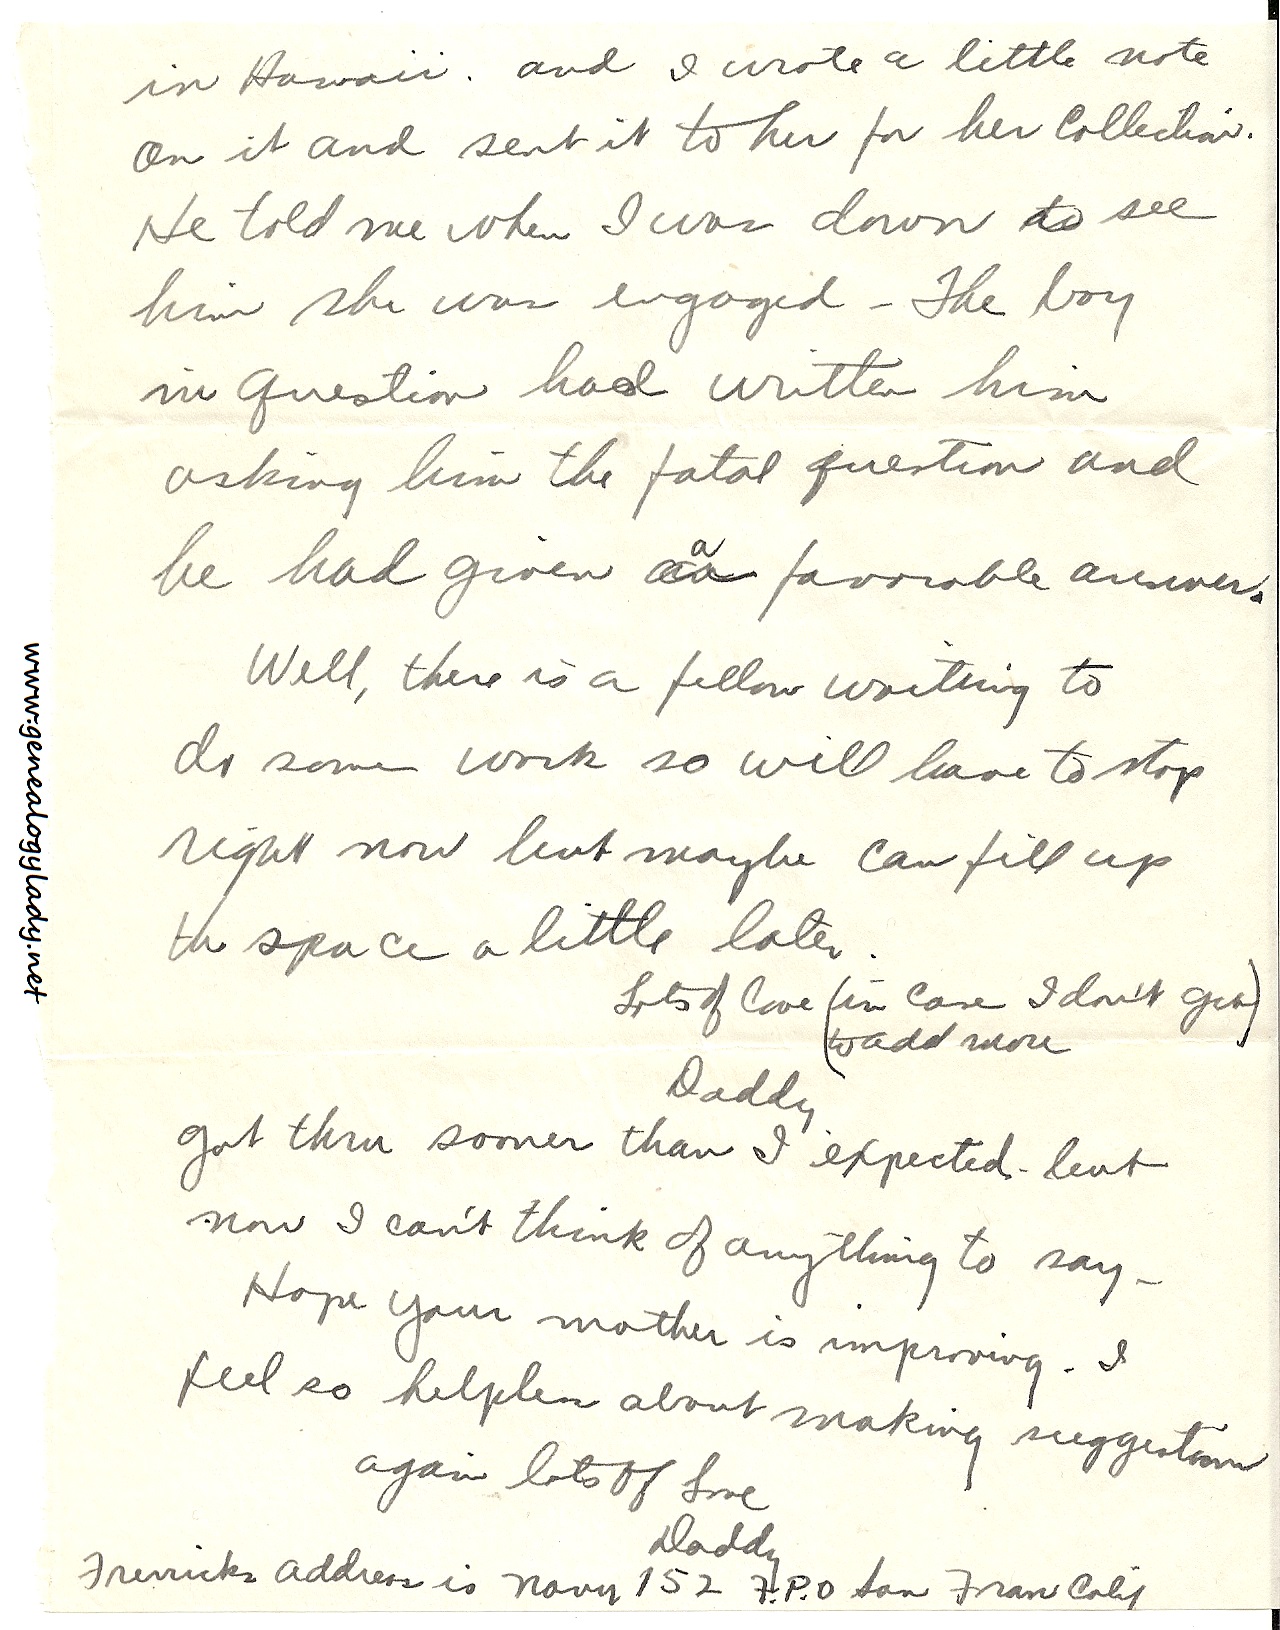 in Hawaii. and I wrote a little note
on it and sent it to her for her Collection.
He told me when I was down to see
him she was engaged - The boy
in question had written him
asking him the fatal question and
he had given a favorable answer.
Well, there is a fellow waiting to
do some work so will have to stop
right now but maybe can fill up
the space a little later.
Lots of Love (in case I don't get)
to add more
Daddy
got thru sooner than I expected - but
now I can't think of anything to say -
Hope your mother is improving - I
feel so helpless about making suggestions
again lots of Love
Daddy
address is Navy 152 F.P.O San Fran Calif
www.genealogylady.net